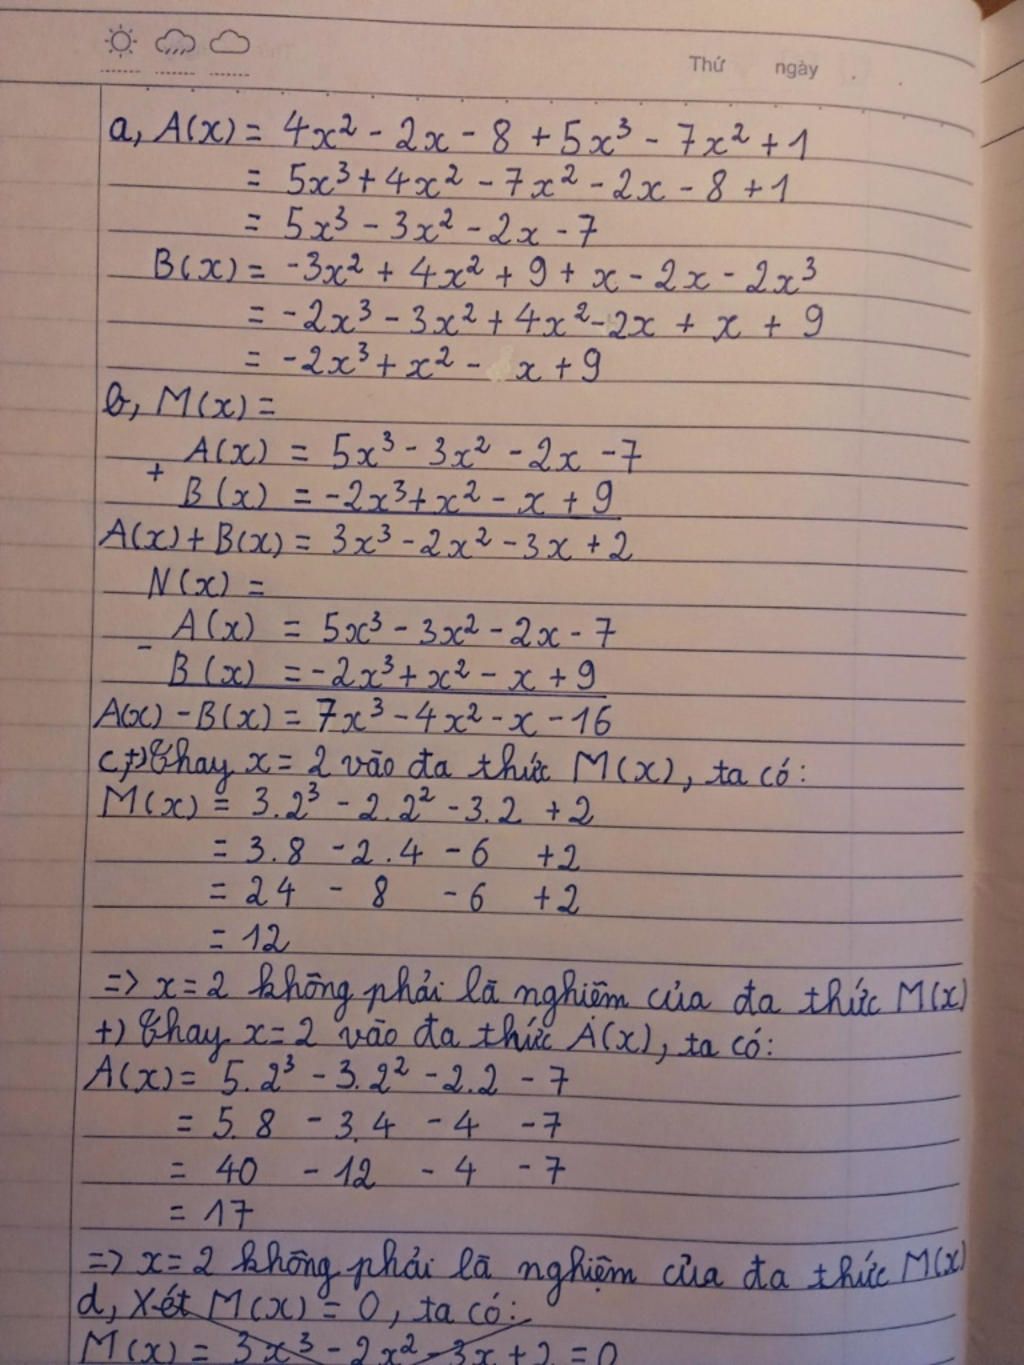 Thứ ngày
a, A(x) = 4x² - 2x - 8 + 5x³ - 7x² + 1
= 5x³ + 4x² - 7x² - 2x - 8 + 1
= 5x³ - 3x² - 2x - 7
B(x) = -3x² + 4x² + 9 + x - 2x - 2x³
= -2x³ - 3x² + 4x² - 2x + x + 9
= -2x³ + x² - x + 9
b, M(x) =
A(x) = 5x³ - 3x² - 2x - 7
+
B(x) = -2x³ + x² - x + 9
A(x) + B(x) = 3x³ - 2x² - 3x + 2
N(x) =
A(x) = 5x³ - 3x² - 2x - 7
-
B(x) = -2x³ + x² - x + 9
A(x) - B(x) = 7x³ - 4x² - x - 16
c, +) Thay x = 2 vào đa thức M(x), ta có:
M(x) = 3.2³ - 2.2² - 3.2 + 2
= 3.8 - 2.4 - 6 + 2
= 24 - 8 - 6 + 2
= 12
=> x = 2 không phải là nghiệm của đa thức M(x)
+) Thay x = 2 vào đa thức A(x), ta có:
A(x) = 5.2³ - 3.2² - 2.2 - 7
= 5.8 - 3.4 - 4 - 7
= 40 - 12 - 4 - 7
= 17
=> x = 2 không phải là nghiệm của đa thức M(x)
d, Xét M(x) = 0, ta có:
M(x) = 3x³ - 2x² - 3x + 2 = 0